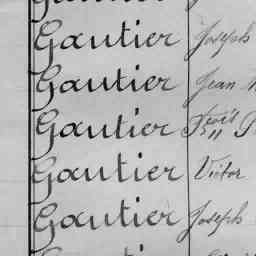 Gautier Joseph
Gautier Jean
Gautier
Gautier Victor
Gautier Joseph